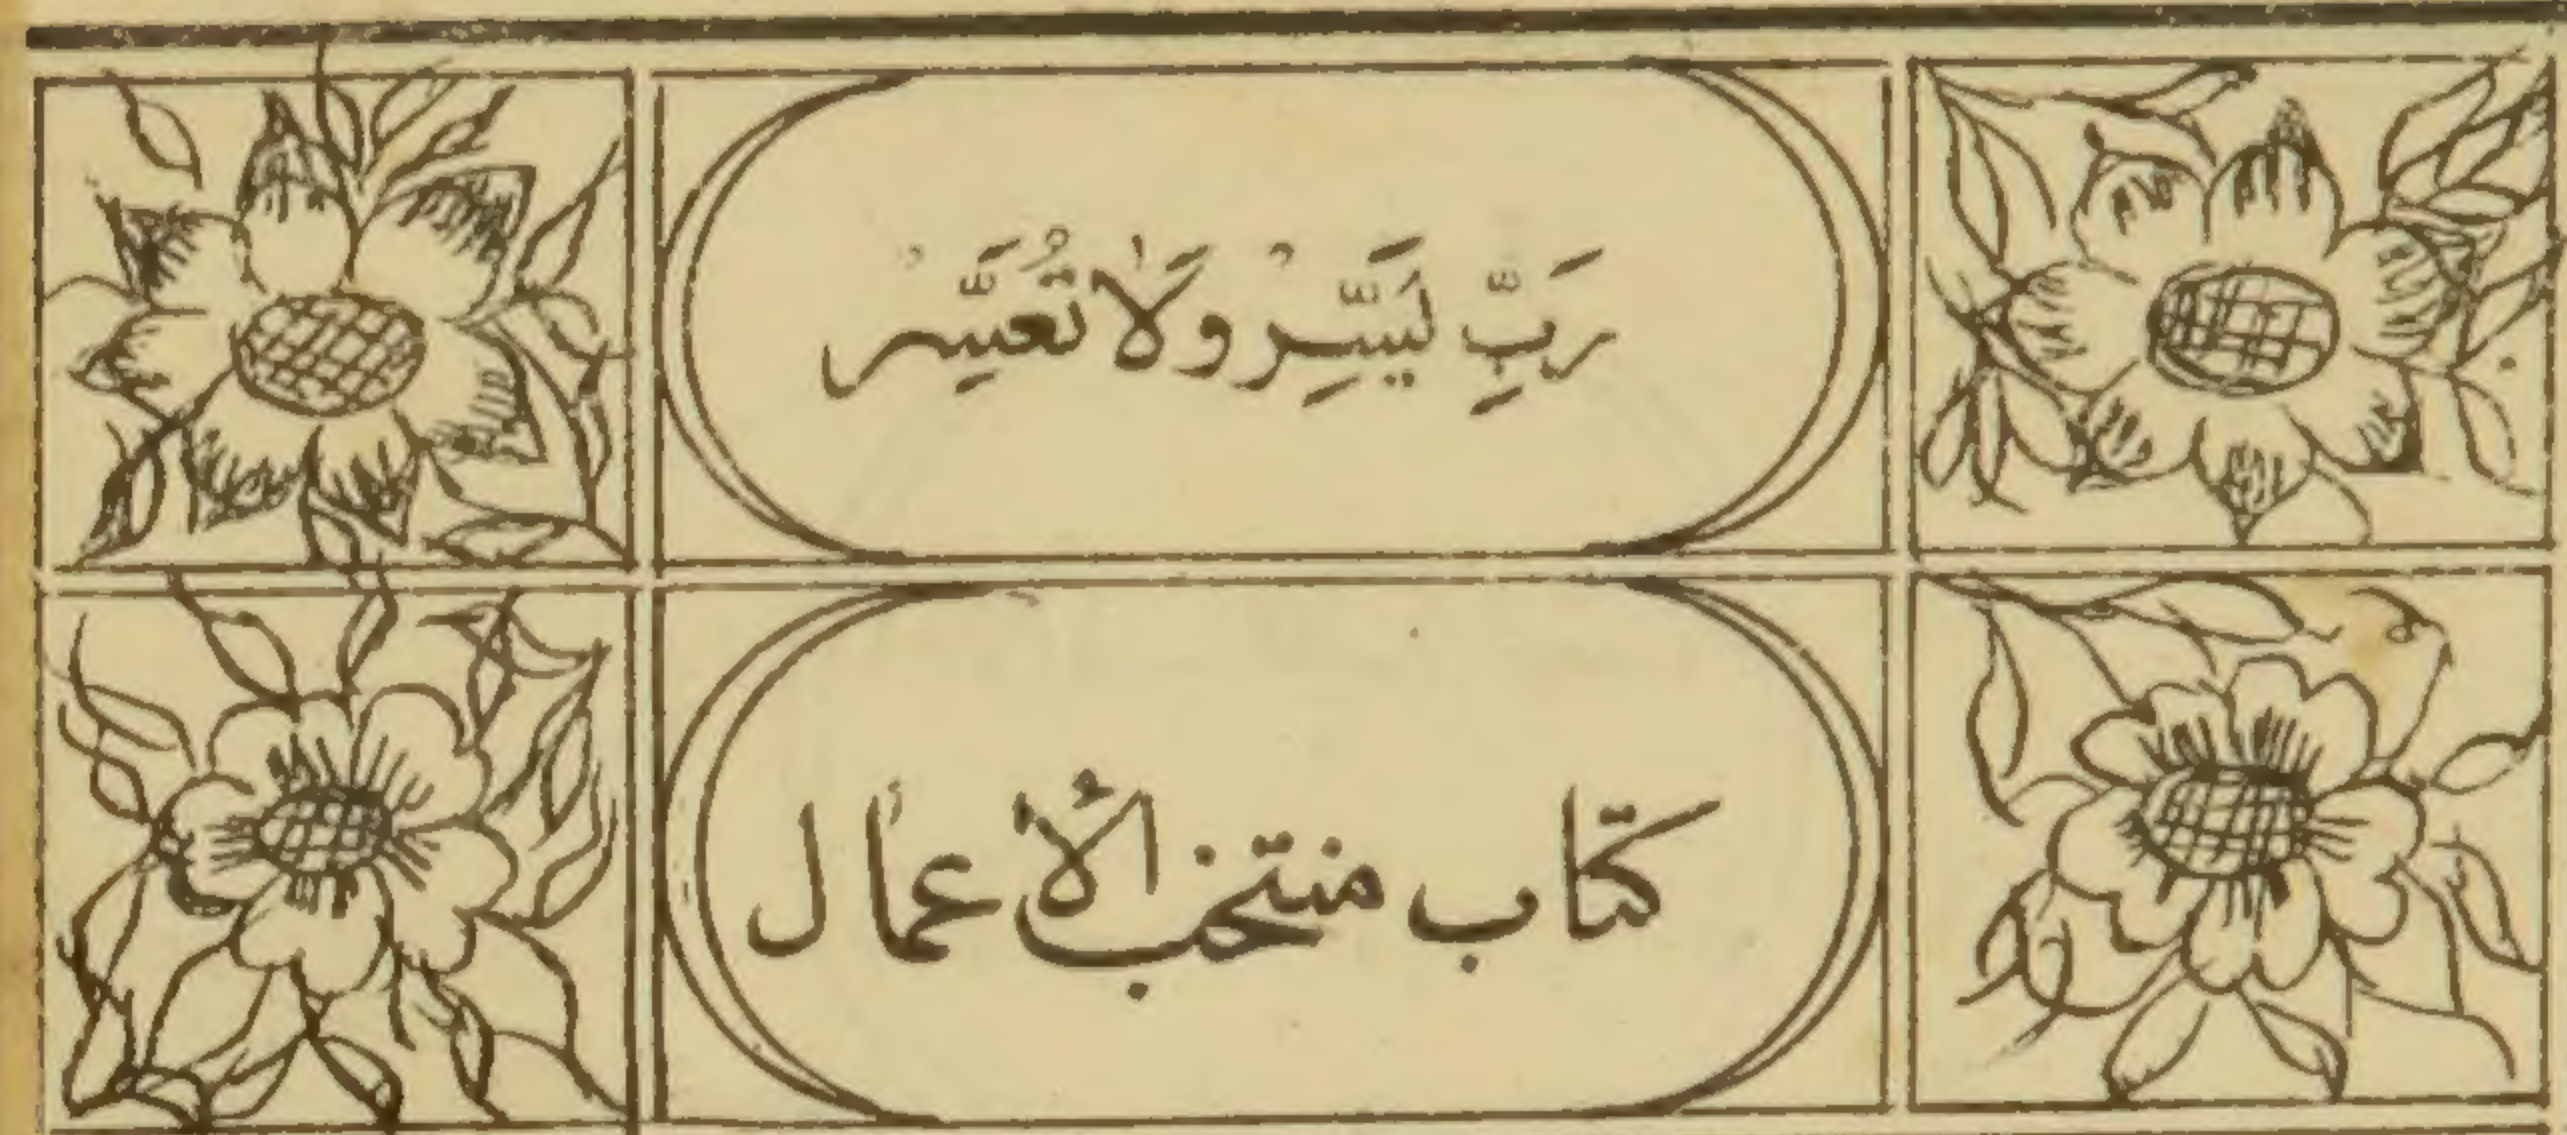 رَبِّ يَسِّرْ وَلَا تُعَسِّرْ
كتاب منتخب الأعمال